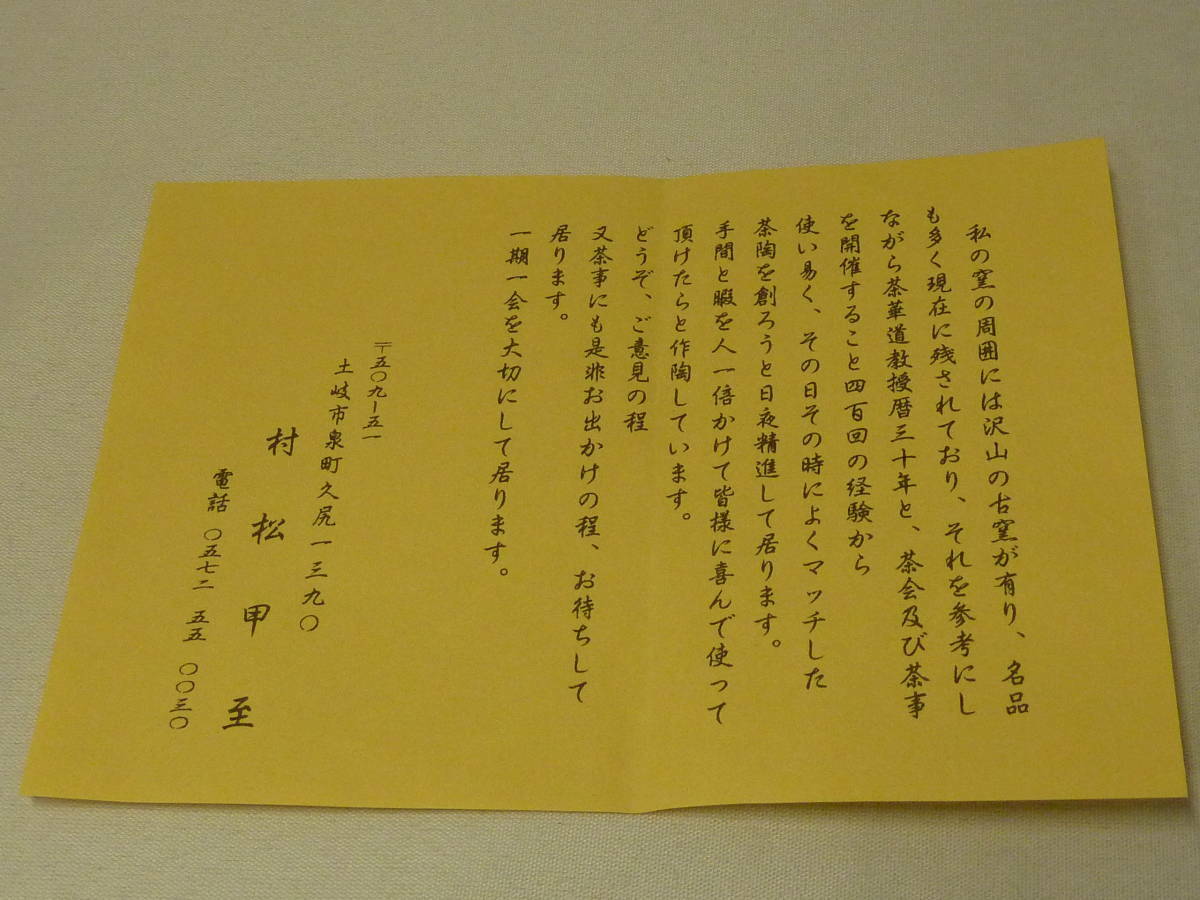 私の窯の周囲には沢山の古窯が有り、名品
も多く現在に残されており、それを参考にし
ながら茶華道教授暦三十年と、茶会及び茶事
を開催すること四百回の経験から
使い易く、その日その時によくマッチした
茶陶を創ろうと日夜精進して居ります。
手間と暇を人一倍かけて皆様に喜んで使って
頂けたらと作陶しています。
どうぞ、ご意見の程
又茶事にも是非お出かけの程、お待ちして
居ります。
一期一会を大切にして居ります。
〒五〇九ー五一
土岐市泉町久尻一三九〇
村松甲至
電話 〇五七二 五五 〇〇三〇